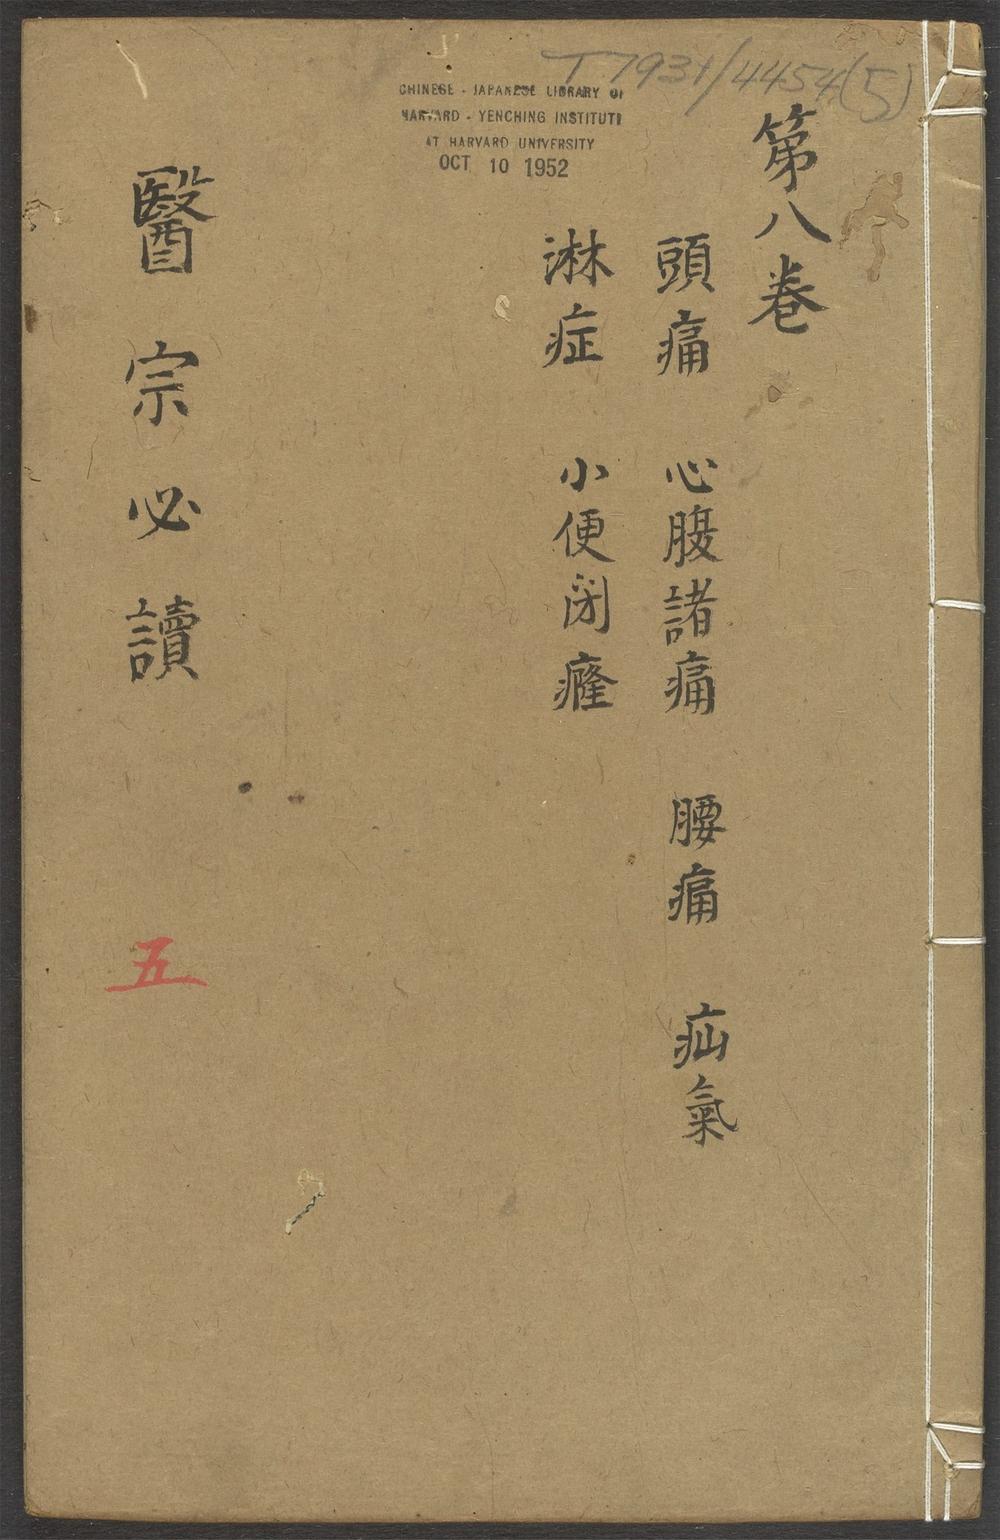 T 7931/4454(5)
CHINESE - JAPANESE LIBRARY OF
HARVARD - YENCHING INSTITUTE
AT HARVARD UNIVERSITY
OCT 10 1952
第八卷
頭痛 心腹諸痛 腰痛 疝氣
淋症 小便闭癃
醫宗必讀
五